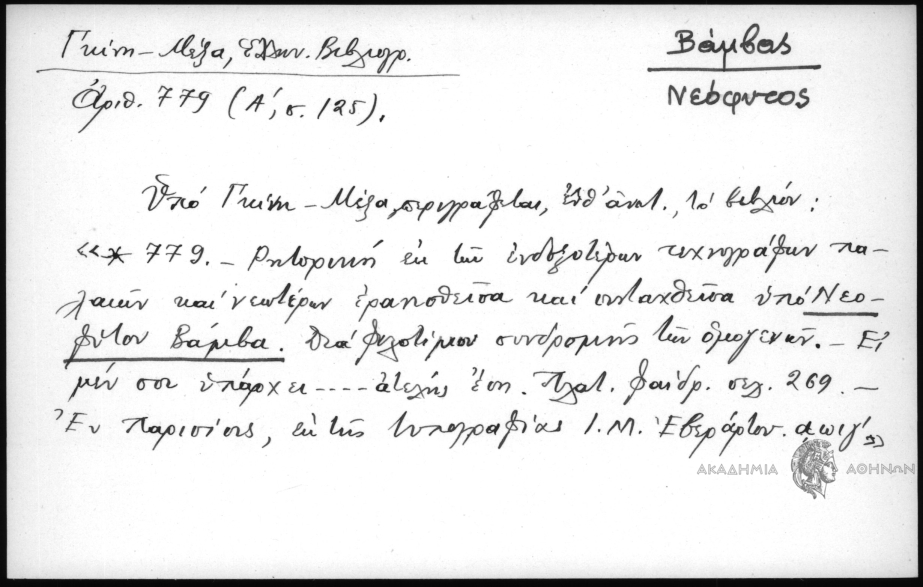 Γκίνη – Μέξα, Ἑλλην. Βιβλιογρ.
Βάμβας
Νεόφυτος
Ἀριθ. 779 (Α', σ. 125).
Ὑπὸ Γκίνη – Μέξα περιγράφεται, ἔνθ' ἀνωτ., τὸ βιβλίον:
«* 779. – Ρητορικὴ ἐκ τῶν ἐνδοξοτέρων τεχνογράφων πα-
λαιῶν καὶ νεωτέρων ἐρανισθεῖσα καὶ συνταχθεῖσα ὑπὸ Νεο-
φύτου Βάμβα. Διὰ φιλοτίμου συνδρομῆς τῶν ὁμογενῶν. – Εἰ
μέν σοι ὑπάρχει ---- ἀτελὴς ἔσῃ. Πλάτ. Φαίδρ. σελ. 269. –
Ἐν Παρισίοις, ἐκ τῆς τυπογραφίας Ι.Μ. Ἐβεράρτου. αωιγ'.
ΑΚΑΔΗΜΙΑ ΑΘΗΝΩΝ